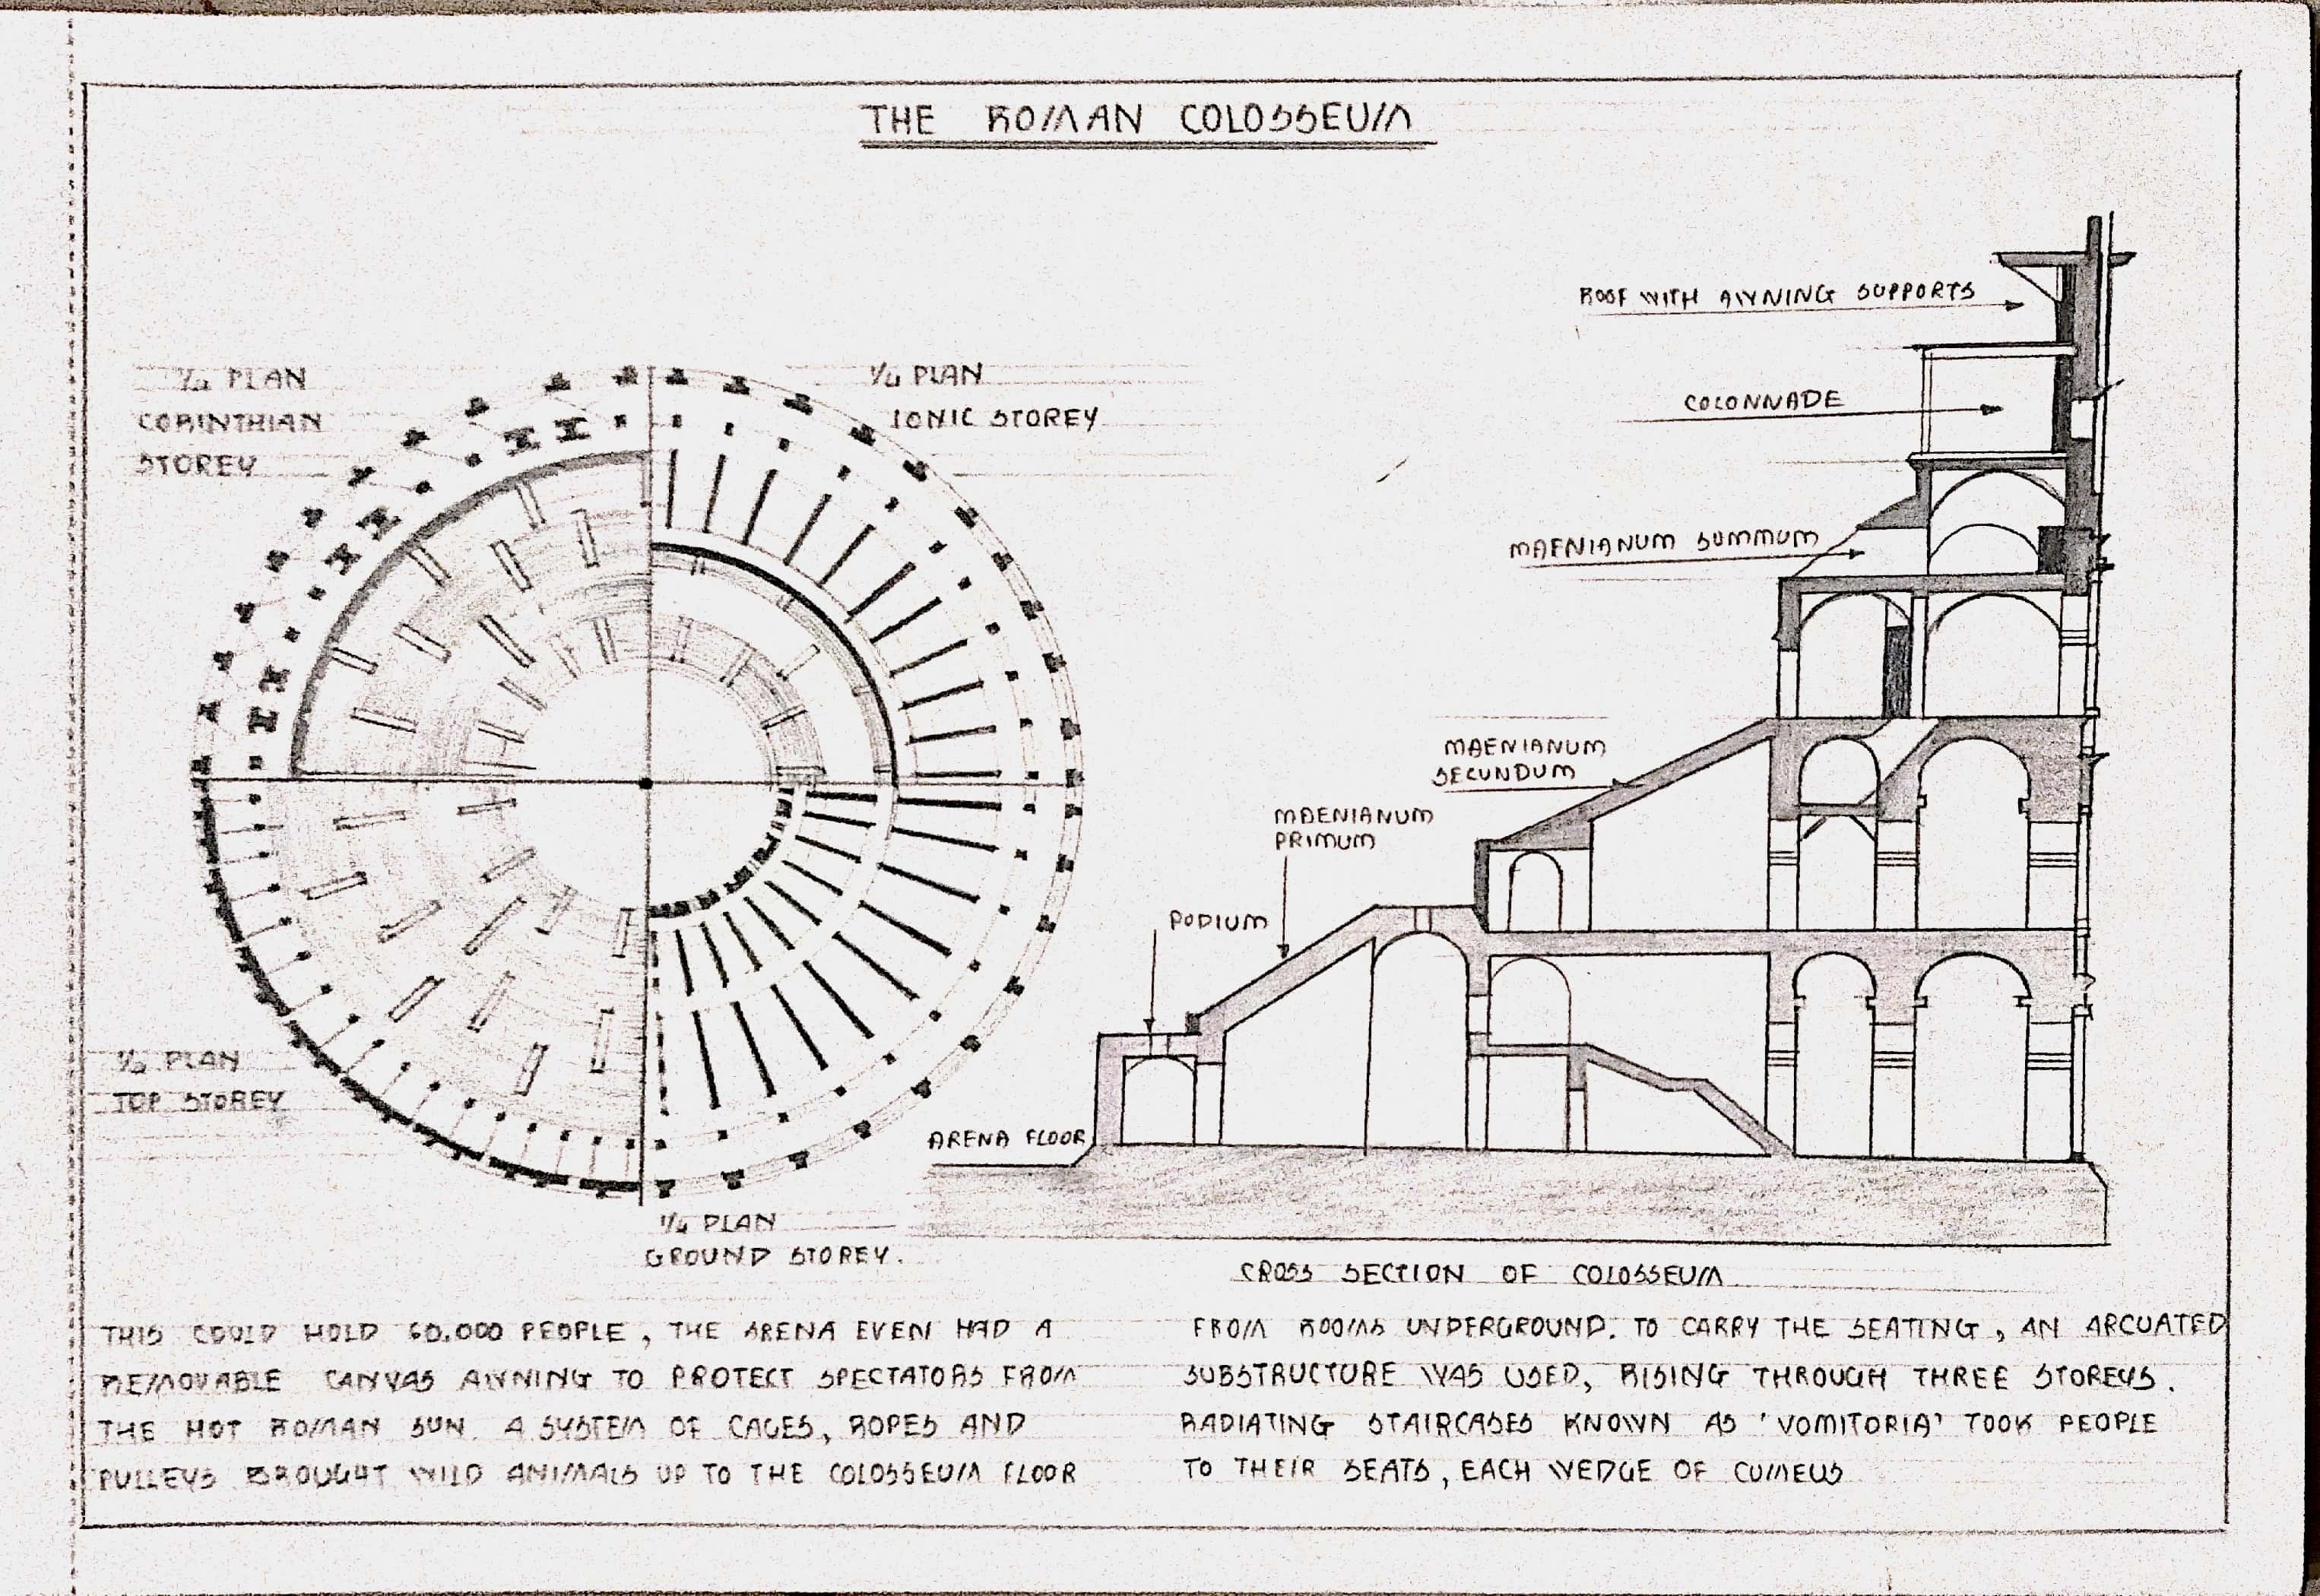 THE ROMAN COLOSSEUM
ROOF WITH AWNING SUPPORTS
1/4 PLAN
CORINTHIAN
STOREY
1/4 PLAN
IONIC STOREY
COLONNADE
MAENIANUM SUMMUM
MAENIANUM
SECUNDUM
MAENIANUM
PRIMUM
PODIUM
1/4 PLAN
TOP STOREY
ARENA FLOOR
1/4 PLAN
GROUND STOREY.
CROSS SECTION OF COLOSSEUM
THIS COULD HOLD 60,000 PEOPLE, THE ARENA EVEN HAD A
REMOVABLE CANVAS AWNING TO PROTECT SPECTATORS FROM
THE HOT ROMAN SUN. A SYSTEM OF CAGES, ROPES AND
PULLEYS BROUGHT WILD ANIMALS UP TO THE COLOSSEUM FLOOR
FROM ROOMS UNDERGROUND. TO CARRY THE SEATING, AN ARCUATED
SUBSTRUCTURE WAS USED, RISING THROUGH THREE STOREYS.
RADIATING STAIRCASES KNOWN AS 'VOMITORIA' TOOK PEOPLE
TO THEIR SEATS, EACH WEDGE OF CUMEUS